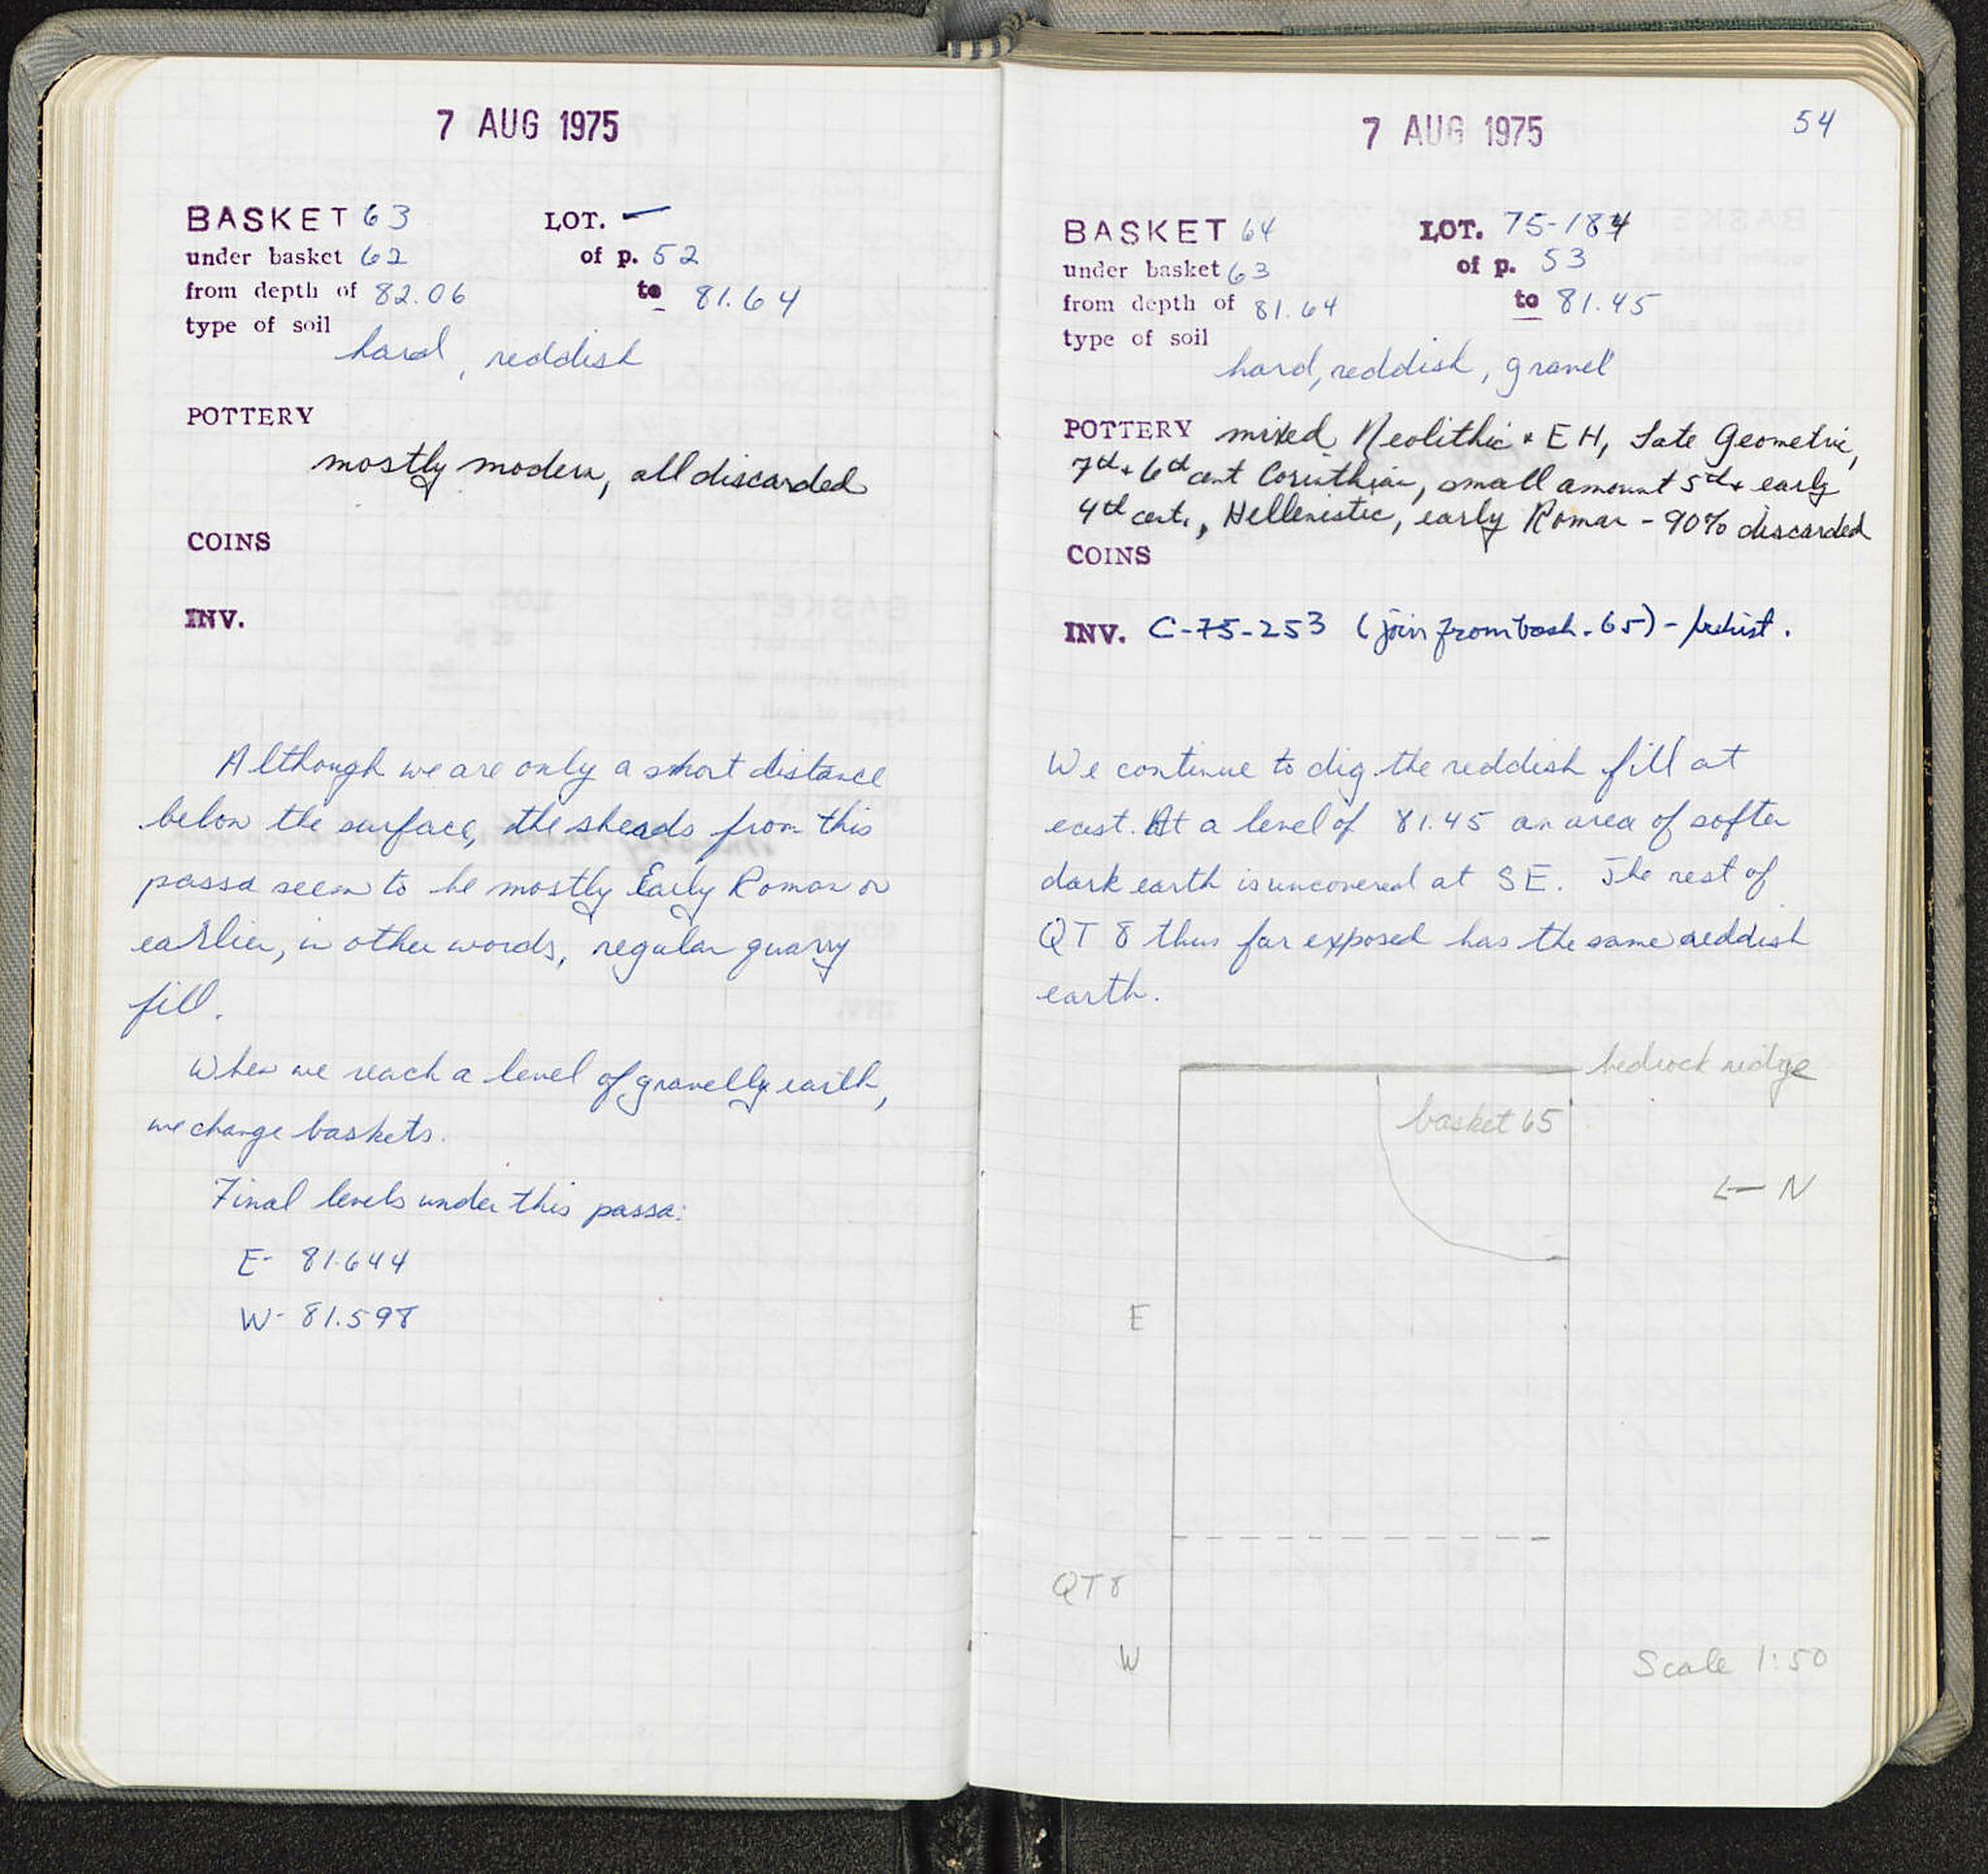 7 AUG 1975
BASKET 63 LOT. —
under basket 62 of p. 52
from depth of 82.06 to 81.64
type of soil
hard, reddish
POTTERY
mostly modern, all discarded
COINS
INV.
Although we are only a short distance
below the surface, the sherds from this
passa seem to be mostly Early Roman or
earlier, in other words, regular quarry
fill.
When we reach a level of gravelly earth,
we change baskets.
Final levels under this passa:
E- 81.644
W- 81.598
7 AUG 1975 54
BASKET 64 LOT. 75-184
under basket 63 of p. 53
from depth of 81.64 to 81.45
type of soil
hard, reddish, gravel
POTTERY mixed Neolithic + EH, Late Geometric,
7th + 6th cent Corinthian, small amount 5th + early
4th cent., Hellenistic, early Roman - 90% discarded
COINS
INV. C-75-253 (join from bask. 65) - prehist.
We continue to dig the reddish fill at
east. At a level of 81.45 an area of softer
dark earth is uncovered at SE. The rest of
QT 8 thus far exposed has the same reddish
earth.
bedrock ridge
basket 65
← N
E
QT 8
W
Scale 1:50